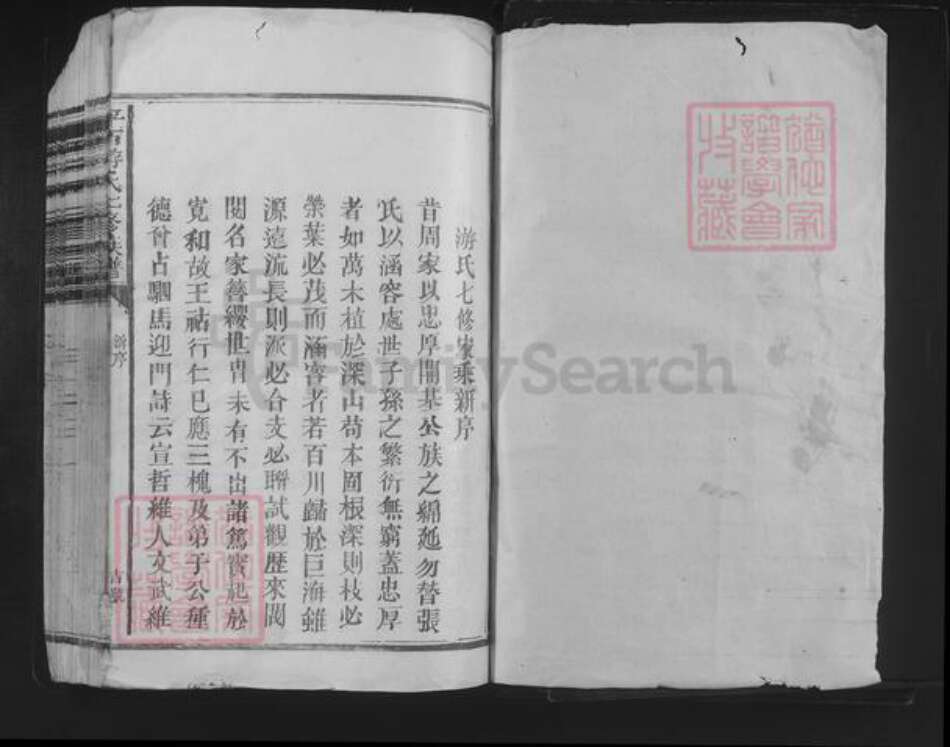 游氏七修家乘新序
昔周家以忠厚開基公族之綿延勿替張
氏以涵容處世子孫之繁衍無窮蓋忠厚
者如萬木植於深山苟本固根深則枝必
榮葉必茂而涵容者若百川歸於巨海雖
源遠流長則派必合支必聯試觀歷來閥
閱名家簪纓世胄未有不由諸篤實起於
寬和故王祜行仁已應三槐及弟于公種
德曾占駟馬迎門詩云宣哲維人文武維
游氏七修族譜
新序
FamilySearch
譜學會
收藏